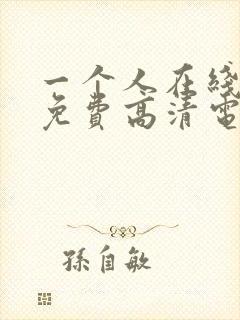 一个人在线
免费高清电
孫自敏